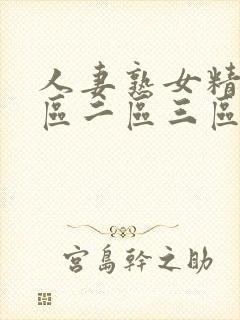 人妻熟女精
區二區三區
宮島幹之助